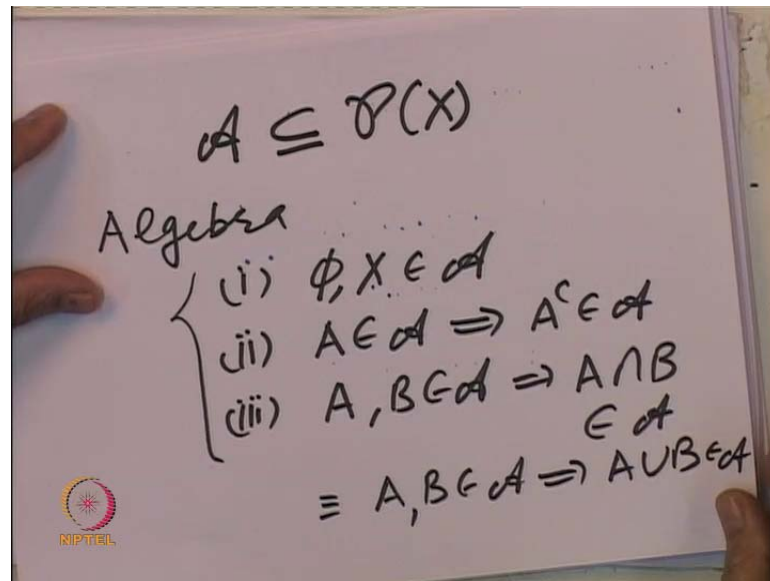 𝒜 ⊆ 𝒫(X)
Algebra
(i) ϕ, X ∈ 𝒜
(ii) A ∈ 𝒜 ⟹ Aᶜ ∈ 𝒜
(iii) A, B ∈ 𝒜 ⟹ A ∩ B
∈ 𝒜
≡ A, B ∈ 𝒜 ⟹ A ∪ B ∈ 𝒜
NPTEL